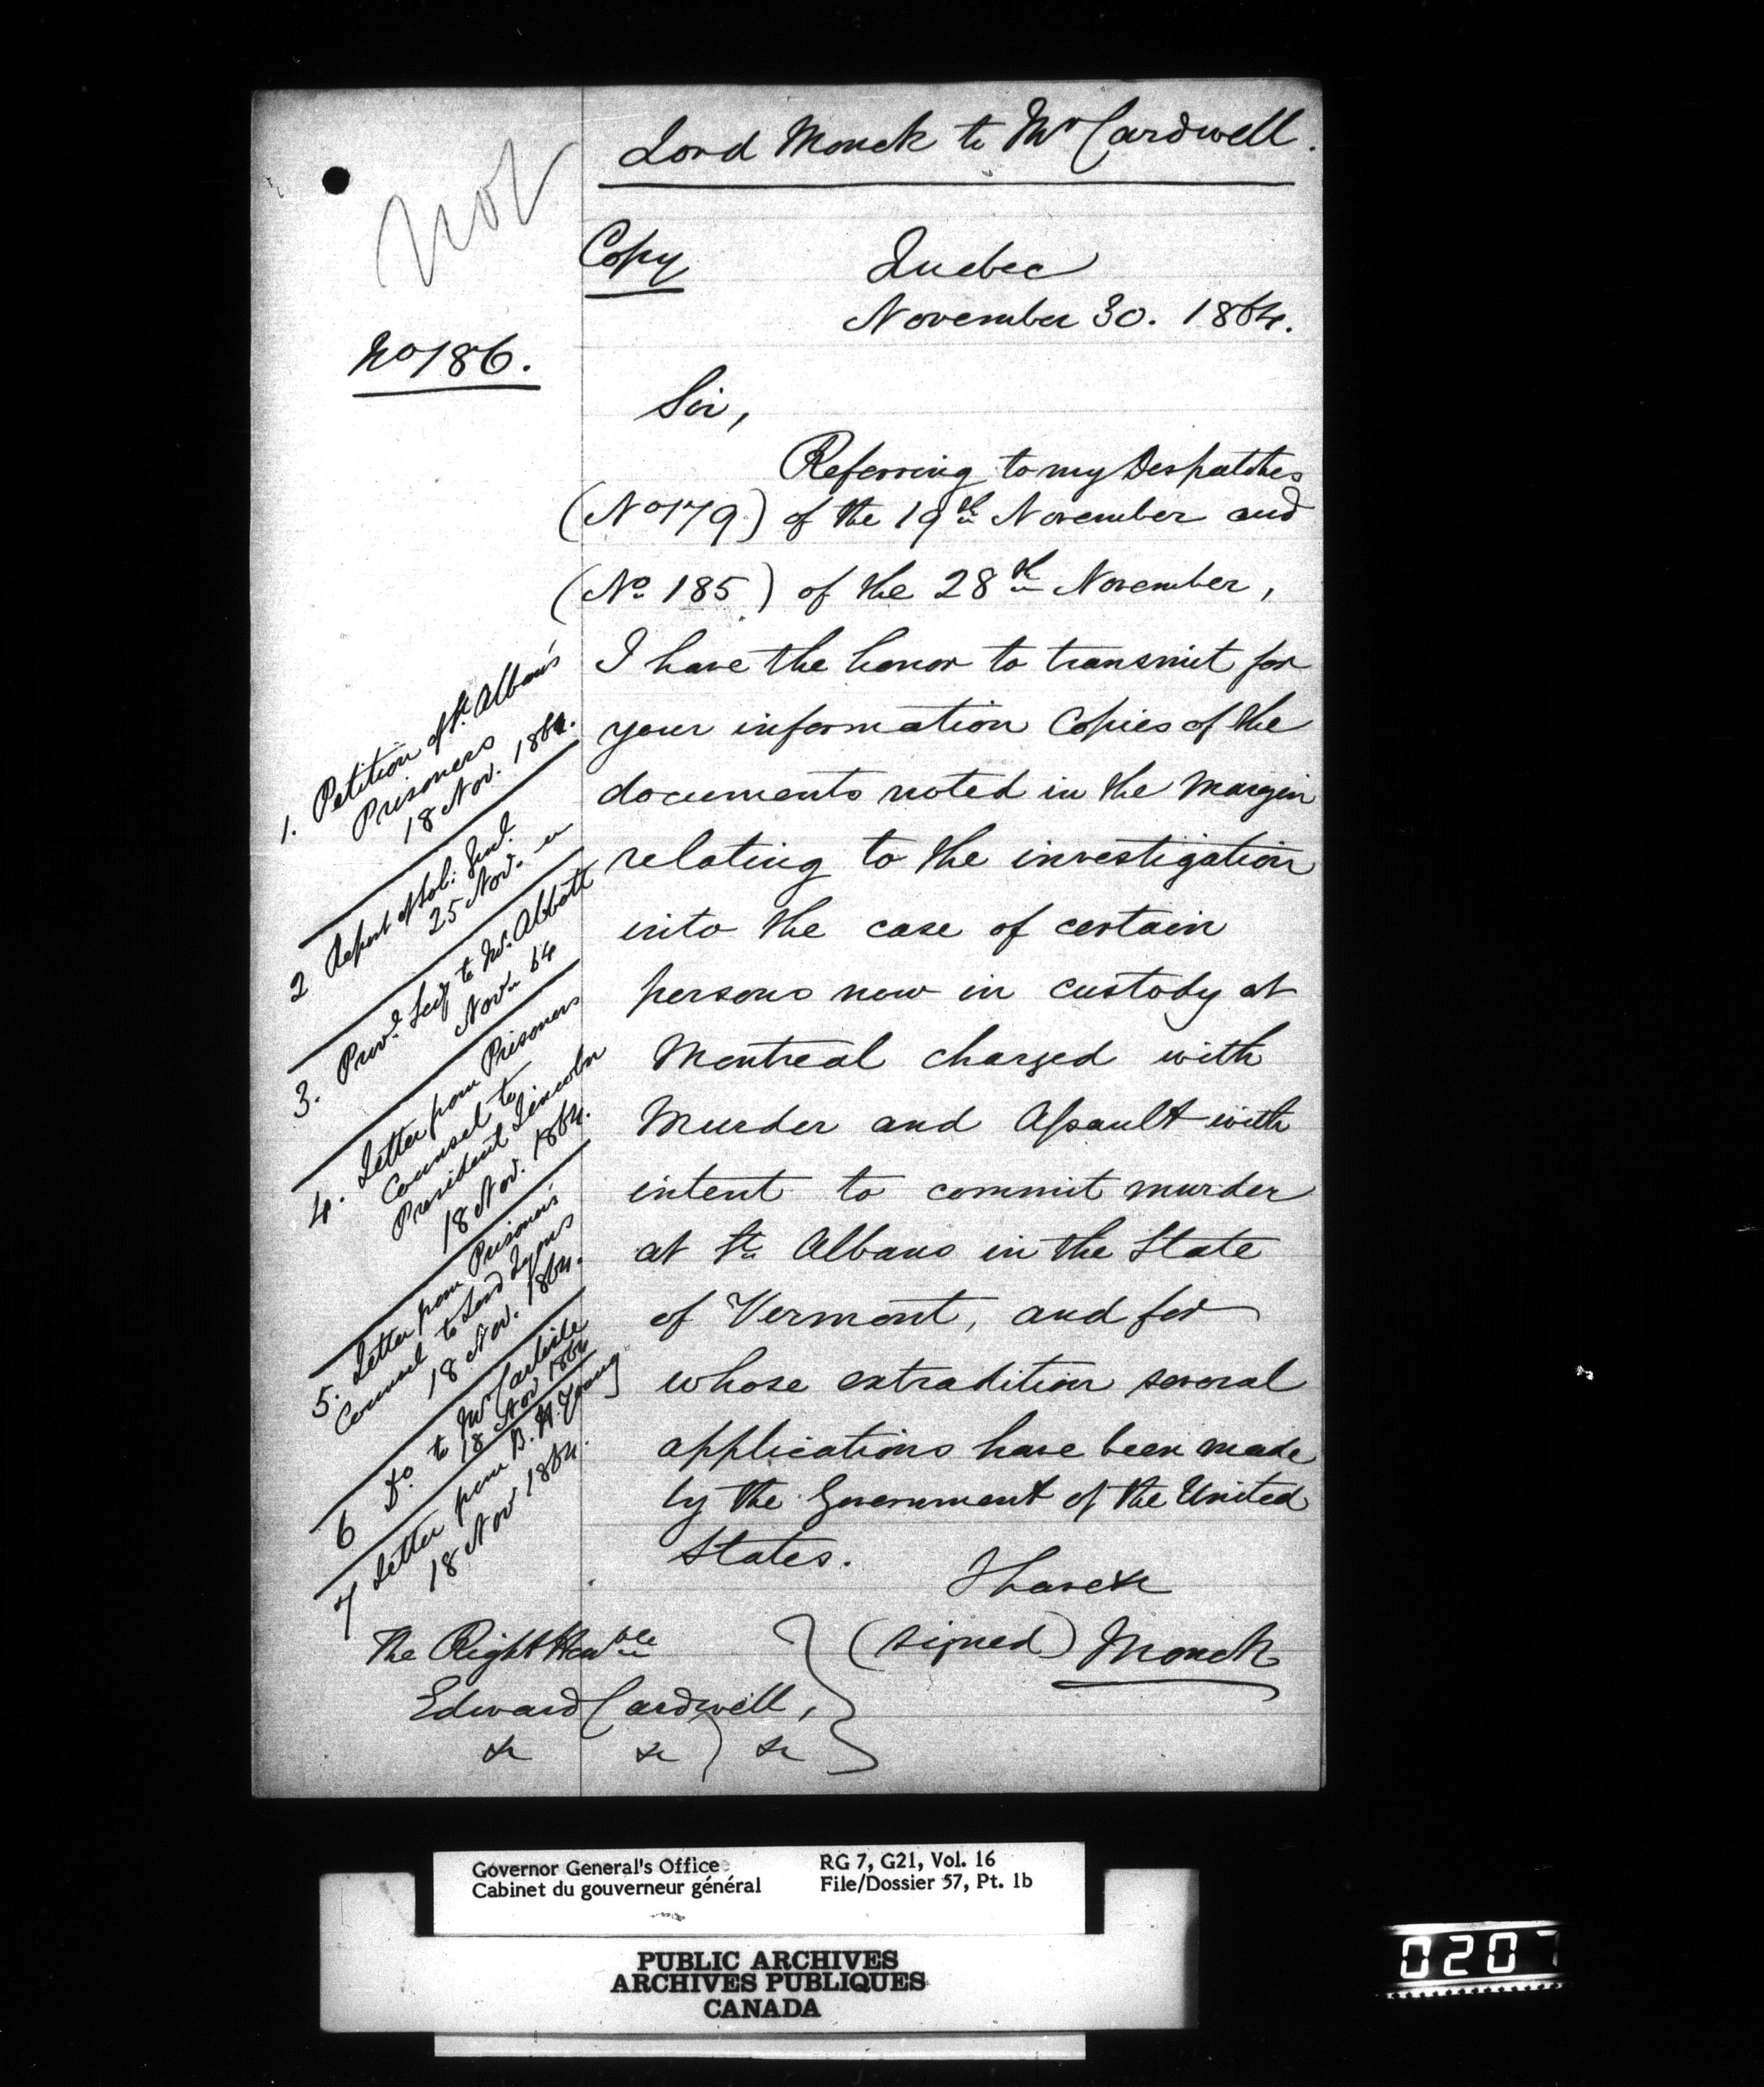 Lord Monck to Mr Cardwell.
Copy
Quebec
November 30. 1864.
No 186.
Sir,
Referring to my Despatches
(No 179) of the 19th November and
(No 185) of the 28th November,
I have the honor to transmit for
your information Copies of the
documents noted in the margin
relating to the investigation
into the case of certain
persons now in custody at
Montreal charged with
Murder and Assault with
intent to commit murder
at St. Albans in the State
of Vermont, and for
whose extradition several
applications have been made
by the Government of the United
States.
I have &c
(signed) Monck
The Right Honble
Edward Cardwell,
&c &c &c
1. Petition of St. Alban's
Prisoners
18 Nov. 1864.
2 Report of Sol: Genl.
25 Nov.
3. Provl. Secy to Mr. Abbott
Nov. 64
4. Letter from Prisoners
Counsel to
President Lincoln
18 Nov. 1864.
5. Letter from Prisoner's
Counsel to Lord Lyons
18 Nov. 1864.
6 Do. to Mr Carlisle
18 Nov 1864
7 Letter from B. H. Young
18 Nov 1864.
Governor General's Office
Cabinet du gouverneur général
RG 7, G21, Vol. 16
File/Dossier 57, Pt. 1b
PUBLIC ARCHIVES
ARCHIVES PUBLIQUES
CANADA
0207